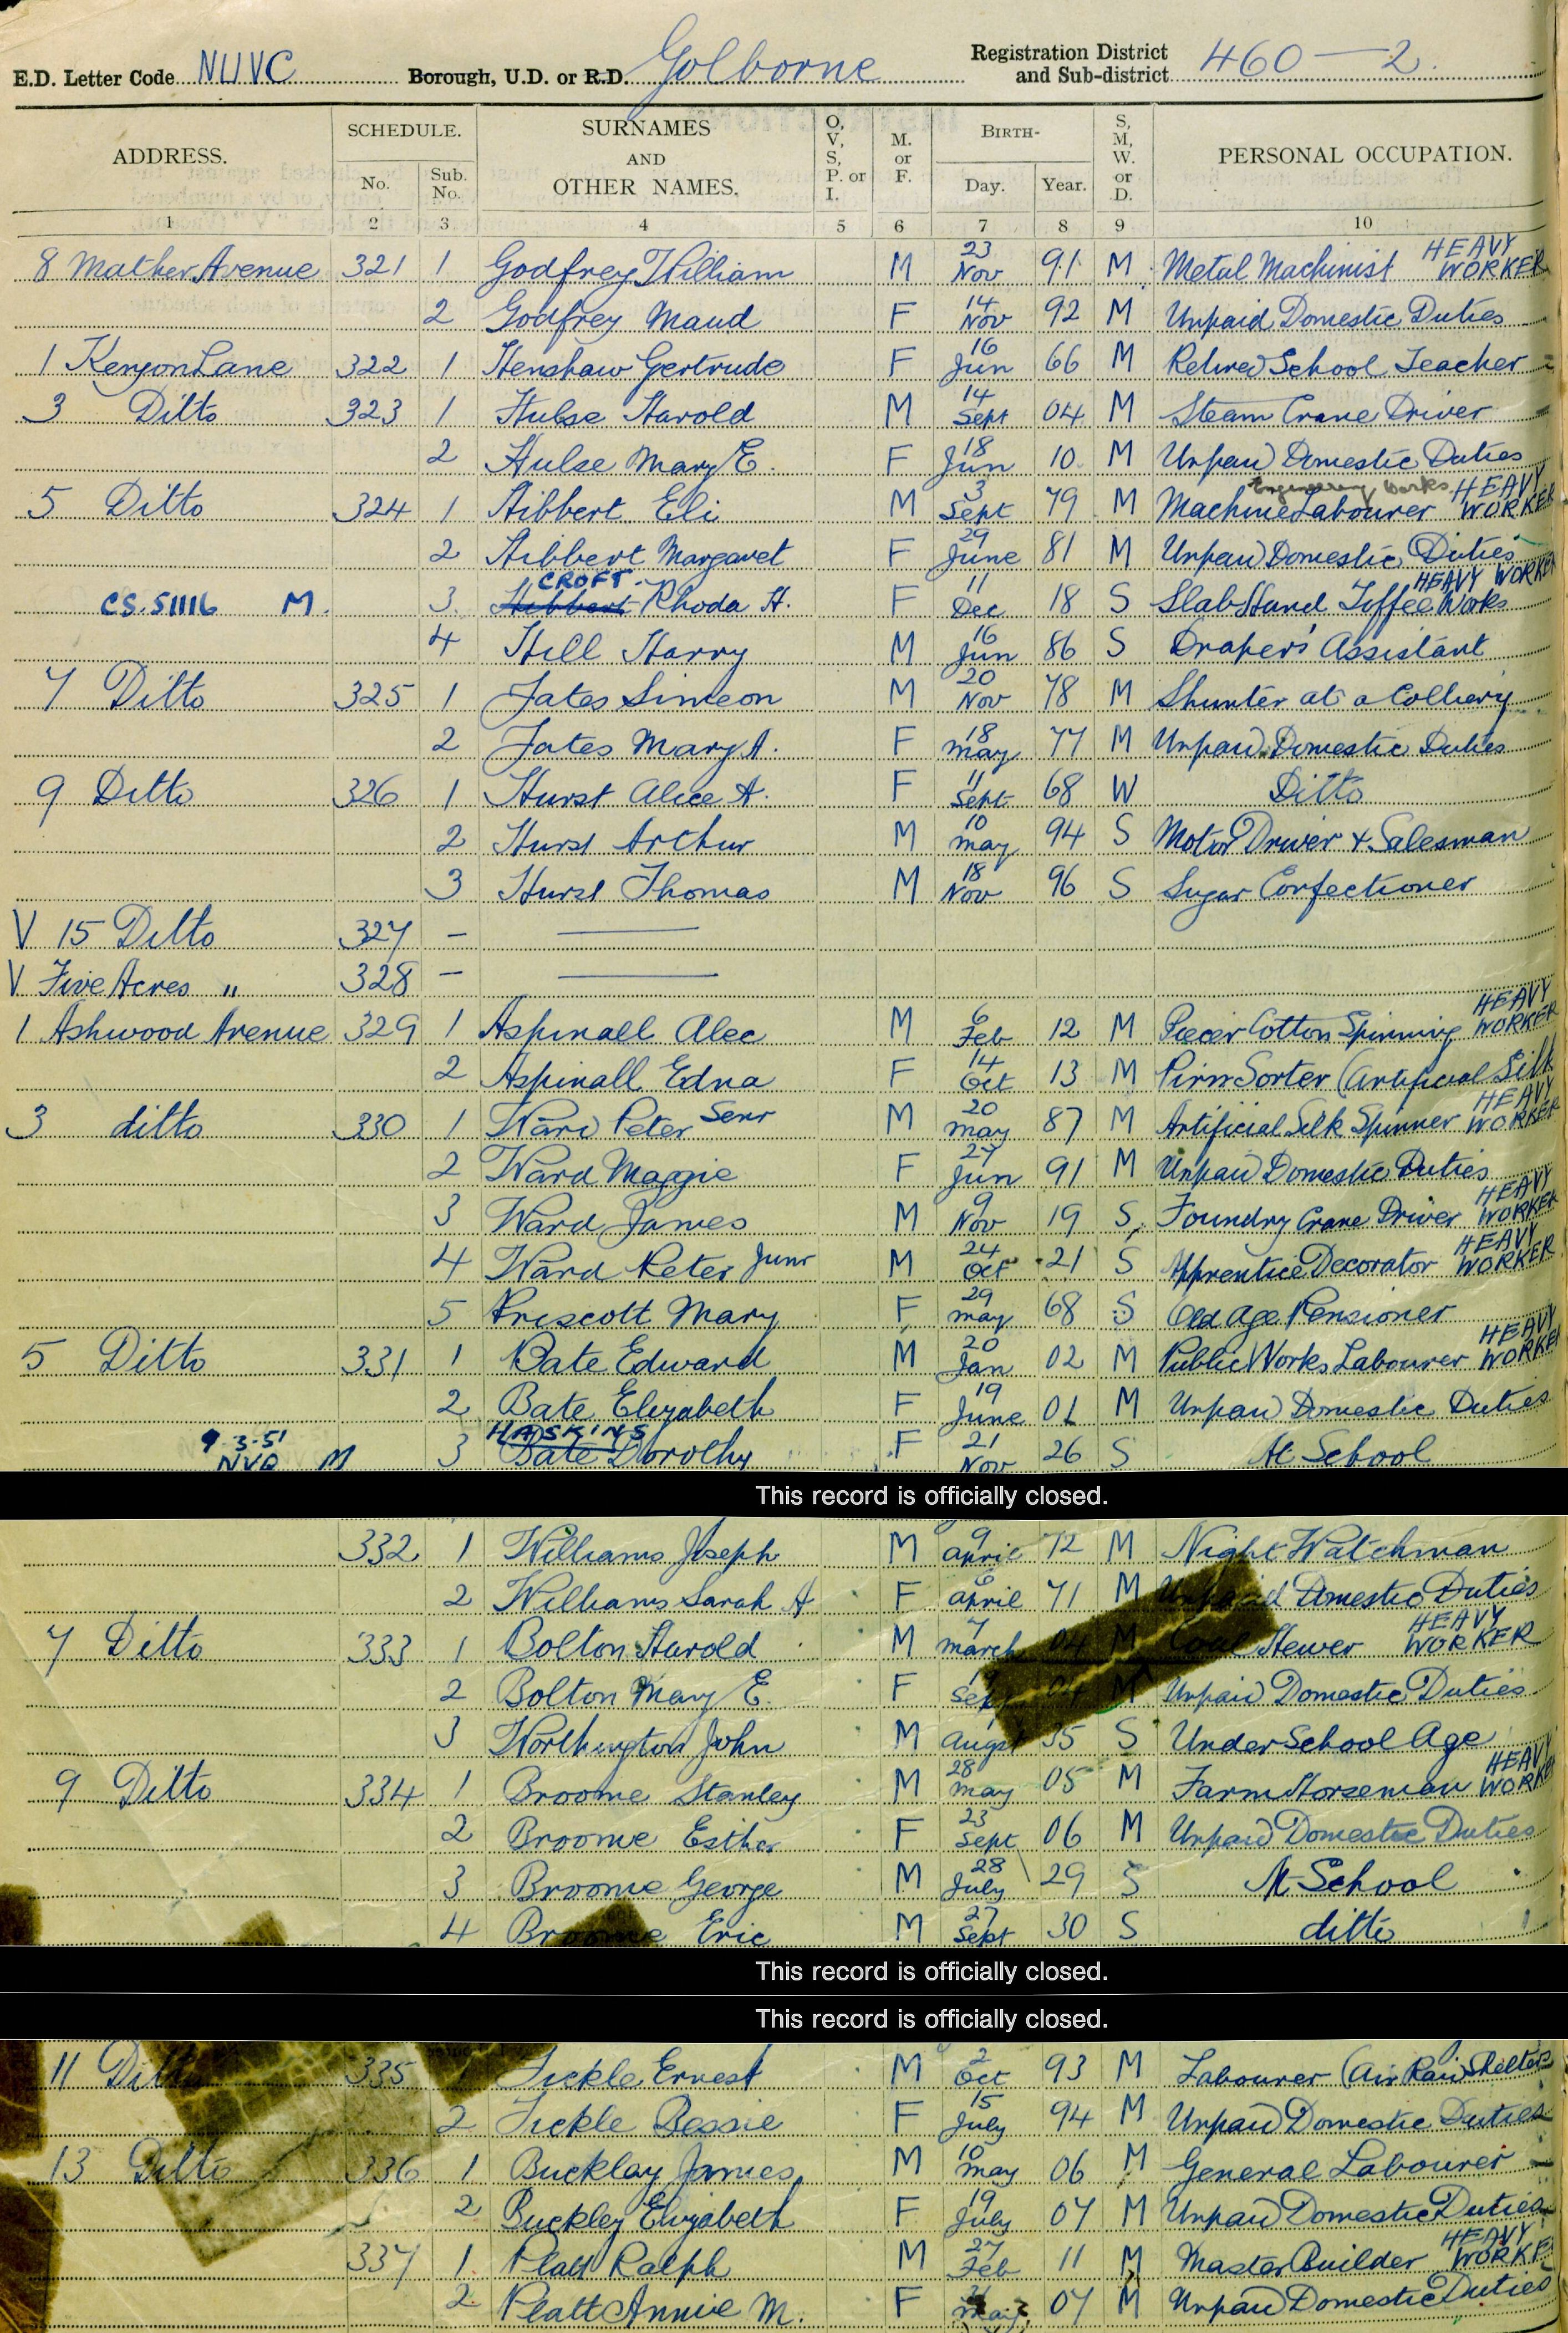 E.D. Letter Code NUVC Borough, U.D. or R.D. Golborne Registration District and Sub-district 460 — 2.
ADDRESS. SCHEDULE. No. Sub. No. SURNAMES AND OTHER NAMES. O, V, S, P. or I. M. or F. BIRTH- Day. Year. S, M, W. or D. PERSONAL OCCUPATION.
1 2 3 4 5 6 7 8 9 10
8 Mather Avenue 321 1 Godfrey William M 23 Nov 91 M Metal Machinist HEAVY WORKER
2 Godfrey Maud F 14 Nov 92 M Unpaid Domestic Duties
1 Kenyon Lane 322 1 Henshaw Gertrude F 16 Jun 66 M Retired School Teacher
3 Ditto 323 1 Hulse Harold M 14 Sept 04 M Steam Crane Driver
2 Hulse Mary E. F 18 Jun 10 M Unpaid Domestic Duties
5 Ditto 324 1 Hibbert Eli M 3 Sept 79 M Machine Labourer Engineering Works HEAVY WORKER
2 Hibbert Margaret F 29 June 81 M Unpaid Domestic Duties
CS.51116 M. 3. Hibbert CROFT. Rhoda H. F 11 Dec 18 S Slab Hand Toffee Works HEAVY WORKER
4 Hill Harry M 16 Jun 86 S Draper's Assistant
7 Ditto 325 1 Jates Simeon M 20 Nov 78 M Shunter at a Colliery
2 Jates Mary A. F 18 May 77 M Unpaid Domestic Duties
9 Ditto 326 1 Hurst Alice A. F 11 Sept 68 W Ditto
2 Hurst Arthur M 10 May 94 S Motor Driver & Salesman
3 Hurst Thomas M 18 Nov 96 S Sugar Confectioner
V 15 Ditto 327 —
V Five Acres " 328 —
1 Ashwood Avenue 329 1 Aspinall Alec M 6 Feb 12 M Piecer Cotton Spinning HEAVY WORKER
2 Aspinall Edna F 14 Oct 13 M Pirn Sorter (Artificial Silk
3 ditto 330 1 Ward Peter Senr M 20 May 87 M Artificial Silk Spinner HEAVY WORKER
2 Ward Maggie F 27 Jun 91 M Unpaid Domestic Duties
3 Ward James M 9 Nov 19 S Foundry Crane Driver HEAVY WORKER
4 Ward Peter Junr M 24 Oct 21 S Apprentice Decorator HEAVY WORKER
5 Priscott Mary F 29 May 68 S Old Age Pensioner
5 Ditto 331 1 Bate Edward M 20 Jan 02 M Public Works Labourer HEAVY WORKER
2 Bate Elizabeth F 19 June 01 M Unpaid Domestic Duties
9.3.51 NVR M 3 Bate HASKINS Dorothy F 21 Nov 26 S At School
This record is officially closed.
332 1 Williams Joseph M 9 April 72 M Night Watchman
2 Williams Sarah A F 6 April 71 M Unpaid Domestic Duties
7 Ditto 333 1 Bolton Harold M 7 March 04 M Coal Hewer HEAVY WORKER
2 Bolton Mary E. F Sept 04 M Unpaid Domestic Duties
3 Worthington John M 1 Augst 35 S Under School Age
9 Ditto 334 1 Broome Stanley M 28 May 05 M Farm Horseman HEAVY WORKER
2 Broome Esther F 23 Sept 06 M Unpaid Domestic Duties
3 Broome George M 28 July 29 S At School
4 Broome Eric M 27 Sept 30 S ditto
This record is officially closed.
This record is officially closed.
11 Ditto 335 1 Tickle Ernest M 2 Oct 93 M Labourer (Air Raid Shelters
2 Tickle Bessie F 15 July 94 M Unpaid Domestic Duties
13 Ditto 336 1 Buckley James M 10 May 06 M General Labourer
2 Buckley Elizabeth F 19 July 07 M Unpaid Domestic Duties
337 1 Platt Ralph M 27 Feb 11 M Master Builder HEAVY WORKE
2 Platt Annie M. F May 07 M Unpaid Domestic Duties